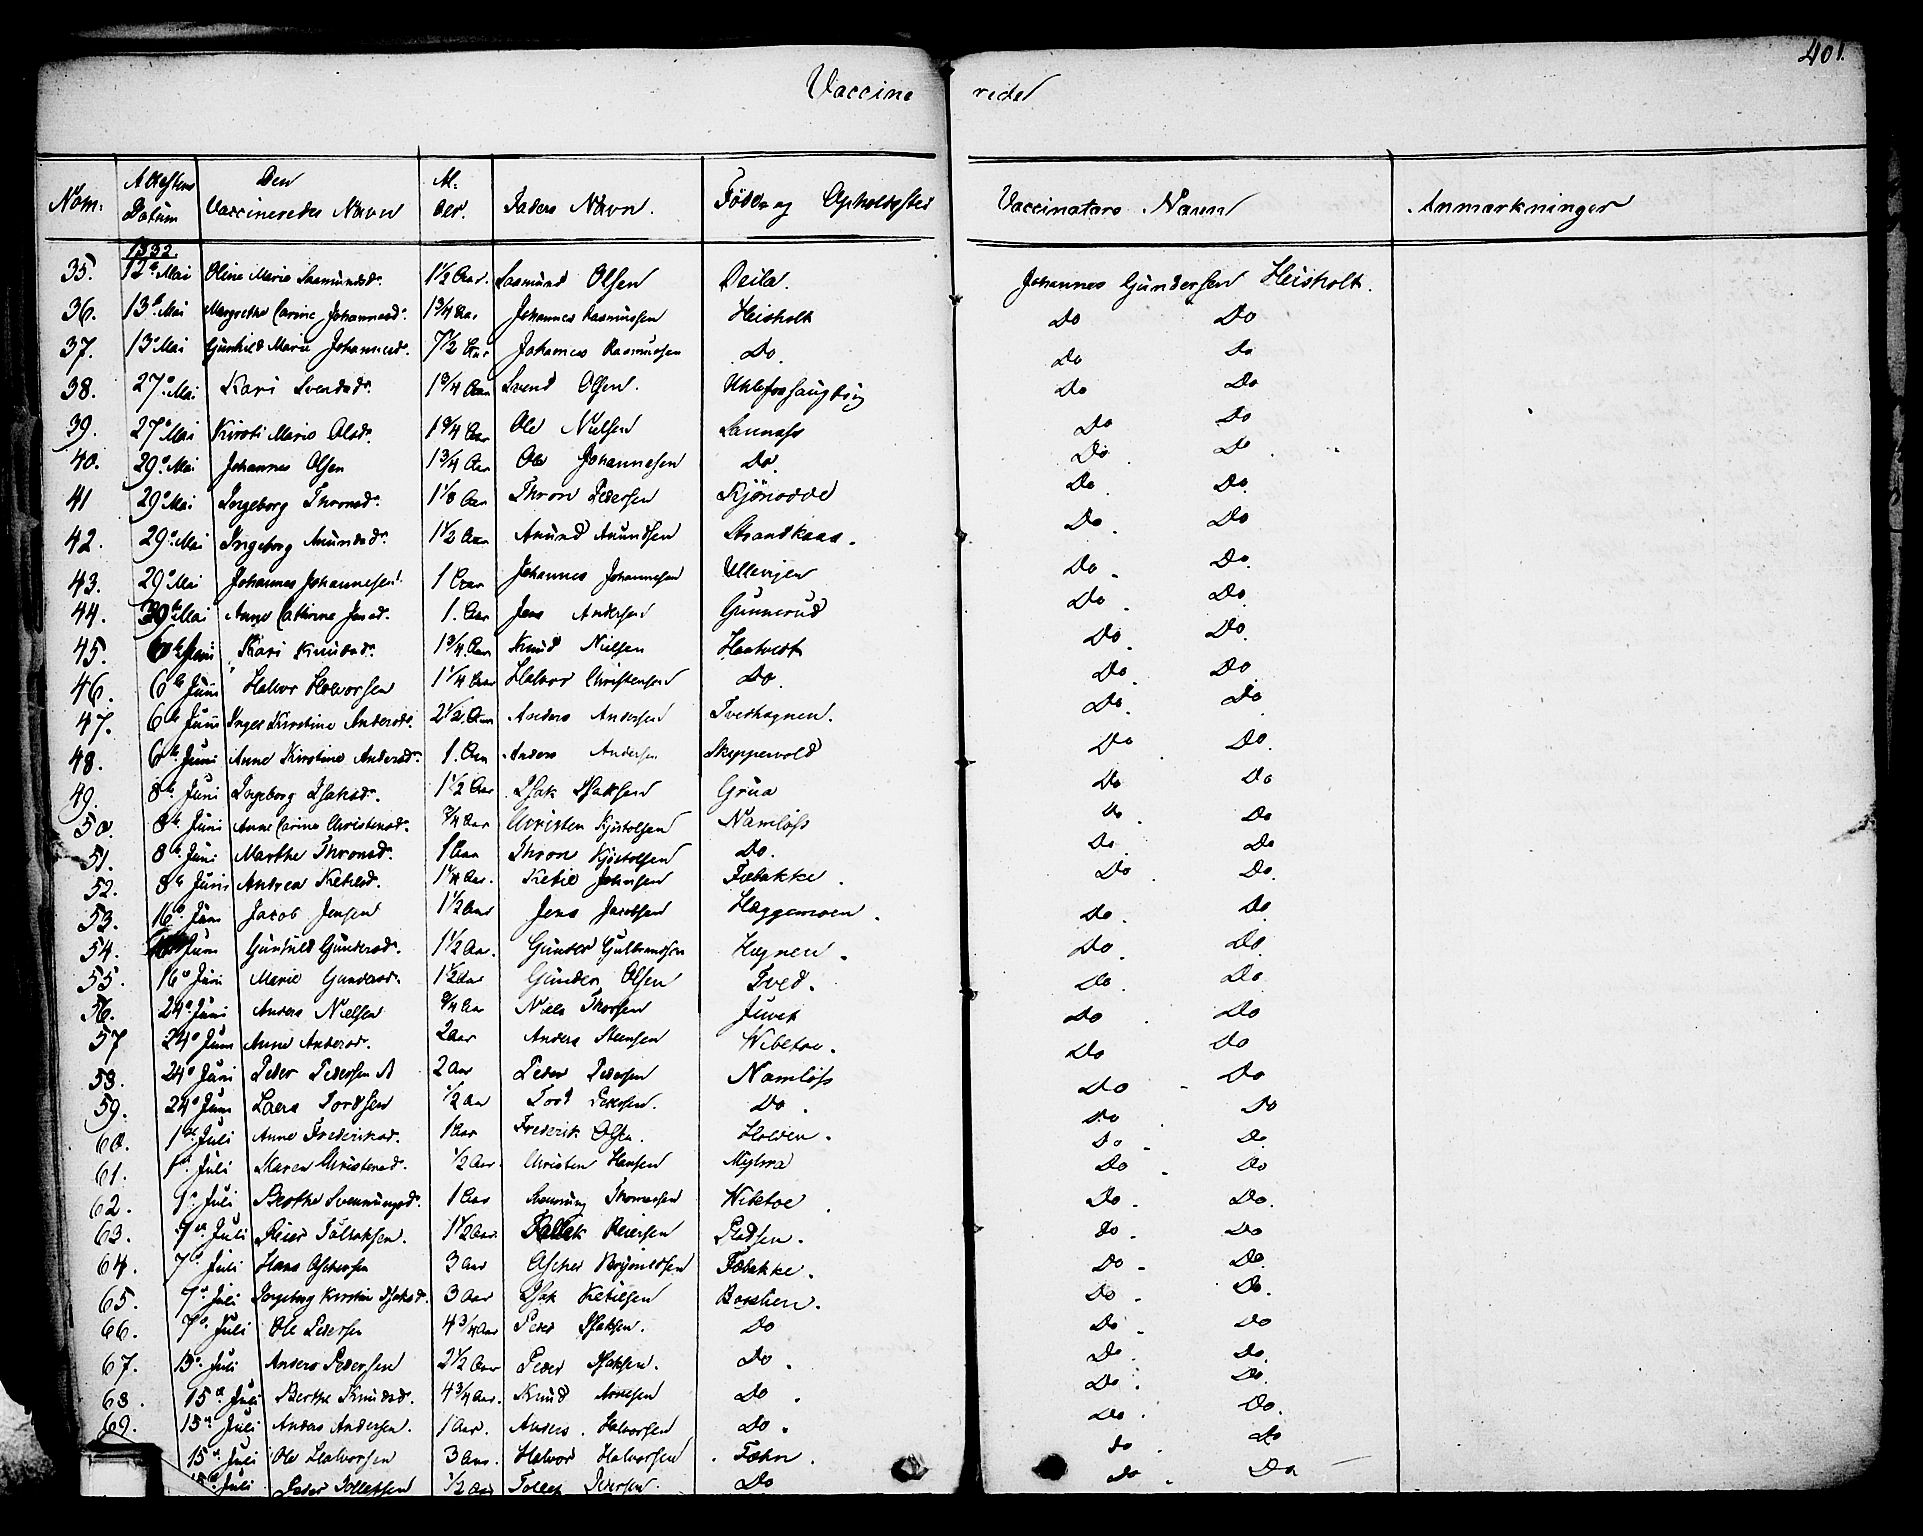 401.
Vaccine rede
Nom: Attestens Datum Den Vaccineredes Navn Al: der. Faders Navn. Føde og Opholdssted Vaccinatørs Navn Anmærkninger
1832.
35. 12te Mai Oline Marie 1 1/2 Aar. Rasmund Olsen Deila. Johannes Gundersen Heisholt.
36. 13de Mai Margrethe Carine Johannesd. 1 3/4 Aar Johannes Rasmussen Heisholt Do Do
37. 13de Mai Gunhild Marie Johannesd. 7 1/2 Aar Johannes Rasmussen Do. Do Do
38. 27de Mai Kari Svendsd. 1 3/4 Aar Svend Olsen. Do Do
39. 27de Mai Kirsti Marie Olsd. 1 3/4 Aar Ole Nielsen Sannæss Do Do
40. 29de Mai Johannes Olsen 1 3/4 Aar Ole Johannesen Do. Do. Do
41 29de Mai Ingeborg Thronsd. 1 1/8 Aar Thron Pedersen Kjönodde Do. Do.
42. 29de Mai Ingeborg Anundsd. 1 1/2 Aar Anund Anundsen Strandkaas. Do. Do
43. 29de Mai Johannes Johannesen. 1 Aar Johannes Johannesen Ullevigen Do. Do.
44. 30te Mai Anne Cathrine Jensd. 1. Aar Jens Andersen Gunnerud Do. Do.
45. 6te Juni Kari Knudsd. 1 3/4 Aar Knud Nielsen Haatvedt Do. Do.
46. 6te Juni Halvor Halvorsen 1 1/4 Aar Halvor Christensen Do. Do. Do
47. 6te Juni Inger Kirstine Andersd. 2 1/2 Aar Anders Andersen Tvedhagnen. Do. Do
48. 6te Juni Anne Kirstine Andersd. 1. Aar Anders Andersen Skeppervold Do. Do.
49. 8de Juni Ingeborg Isaksd. 1 1/2 Aar Isak Isaksen Grua Do Do
50. 8de Juni Anne Carine Christensd. 3/4 Aar Christen Kjøstolsen Namløss Do. Do
51. 8de Juni Marthe Thronsd. 1 Aar Thron Kjøstolsen Do. Do. Do
52. 8de Juni Andrea Ketilsd. 1 1/4 Aar. Ketil Johnsen Fæbakke. Do. Do.
53. 16de Juni Jacob Jensen 1 1/2 Aar Jens Jacobsen Haggemoen. Do. Do.
54. 16de Juni Gunhild Gundersd. 1 1/2 Aar. Gunder Gulbrandsen Hagnen. Do. Do.
55. 16de Juni Marie Gundersd. 1 1/2 Aar Gunder Olsen Tved. Do. Do.
56. 24de Juni Anders Nielsen 3/4 Aar Niels Thorsen Juvet Do. Do
57 24de Juni Anne Andersd. 2 Aar Anders Steensen Wibetoe. Do Do
58. 24de Juni Peder Pedersen 2 Aar Peder Pedersen Namløss Do. Do
59. 24de Juni Laers Tordsen 1/2 Aar Tord Pedersen. Do. Do. Do
60. 1ste Juli Anne Frederiksd. 1 Aar Frederik Olsen Holden. Do. Do.
61. 1ste Juli Maren Christensd. 1/2 Aar. Christen Hansen Myhra Do. Do
62. 1ste Juli Berthe Svennungsd. 1 Aar Svennung Thomassen Wibetoe. Do. Do.
63. 7de Juli Reier Tallaksen. 1 1/2 Aar. Tallak Reiersen Do. Do
64. 7de Juli Hans Aschersen 3 Aar Ascher Brynildsen Fæbakke. Do. Do.
65. 7de Juli Ingeborg Kirstine Isaksd. 3 Aar Isak Ketilsen Do. Do.
66. 7de Juli Ole Pedersen 4 3/4 Aar Peder Isaksen. Do Do. Do
67. 13de Juli Anders Pedersen 2 1/2 Aar Peder Isaksen. Do. Do. Do.
68. 15de Juli Berthe Knudsd. 4 3/4 Aar. Knud Do. Do. Do.
69. 15de Juli Anders Andersen. 1 Aar. Anders Halvorsen Do. Do. Do.
15de Juli Ole Halvorsen 3 Aar. Halvor Halvorsen Fæhn. Do. Do
15de Juli Peder Tollefsen 1/2 Aar Tollef Pedersen. Do Do. Do